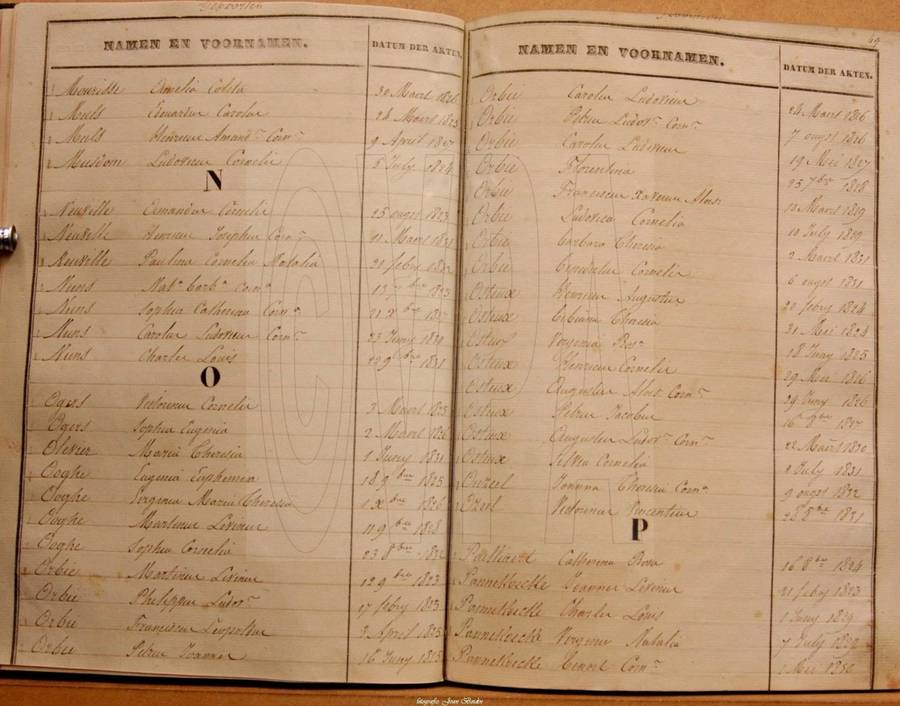 Geboorten
NAMEN EN VOORNAMEN. DATUM DER AKTEN.
Amelia Colita 30 Maart 1826
Muls Eduardus Carolus 24 Maart 1823
Muls Henricus Amand. Corn.
9 April 1827
Ludovicus Cornelis 5 July 1824
N
Neuville Amandus Cornelis 25 augst 1823
Neuville Henricus Josephus Corn. 11 Maart 1831
Neuville Paulina Cornelia Natalia 21 febry 1832
Nuns Nat. Barb. Corn.
Nuns Sophia Catharina Corn.
Nuns Carolus Ludovicus Corn. 23 Juny
Nuns Charles Louis 1831
O
Ogers Victorinus Cornelis 3 Maart 1825
Ogers Sophia Eugenia 2 Maart 1826
Olivier Maria Theresia 1 Juny 1831
Ooghe Eugenia Euphemia 18 9ber 1825
Ooghe Virginia Maria Theresia 1 Xber 1826
Ooghe Martinus Livinus 11 9ber 1828
Ooghe Sophia Cornelia 23 8ber
Orbie Martinus Livinus 12 9ber 1823
Orbie Philippus Ludov. 17 febry 1823
Orbie Franciscus Leopoldus 3 April 1825
Orbie Petrus Joannes 16 Juny 1825
NAMEN EN VOORNAMEN. DATUM DER AKTEN.
Orbie Carolus Ludovicus 24 Maart 1826
Orbie Petrus Ludov. Corn. 7 augst 1826
Orbie Carolus Ludovicus 19 Mei 1827
Orbie Florentina 25 7ber 1828
Orbie Franciscus Xaverius Alois. 10 Maart 1829
Orbie Ludovica Cornelia 10 July 1829
Orbie Barbara Theresia 2 Maart 1831
Orbie Cornelis 6 augst 1831
Osteux Henricus Augustus 20 febry 1824
Osteux Bibiana Theresia 31 Mei 1824
Osteux Virginia Rosa 18 Juny 1825
Osteux Henricus Cornelis 29 Mei 1826
Osteux Augustus Alois. Corn. 29 Juny 1826
Osteux Petrus Jacobus
Osteux Augustus Ludov. Corn. 22 Maart 1830
Osteux Silvia Cornelia 2 July 1831
Joanna Theresia Corn. 9 augst 1832
Victorinus Vincentius 28 8ber 1831
P
Catharina Rosa 16 8ber 1824
Pannekoecke Joannes Livinus 21 febry 1823
Pannekoecke Charles Louis 1 Juny 1829
Pannekoecke Virginia Natalia 7 July 1832
Pannekoecke Benoit Corn. 1 Mei 1830
fotografie Joan Binder